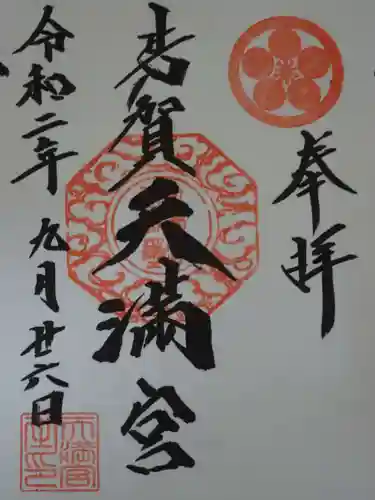 奉拝
賀天満宮
令和二年九月廿六日